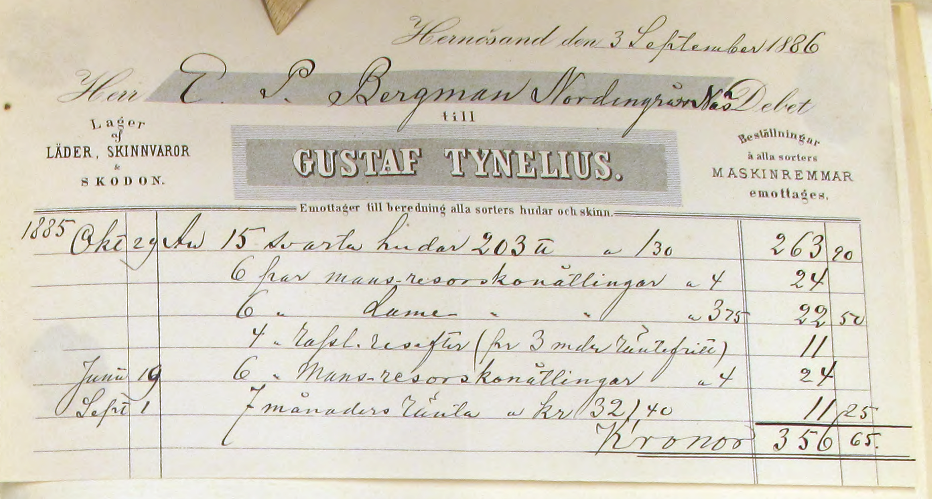 Hernösand den 3 September 1886
Herr E. P. Bergman Nordingrå Näs Debet
till
Lager
af
LÄDER, SKINNVAROR
&
SKODON.
GUSTAF TYNELIUS.
Beställningar
à alla sorters
MASKINREMMAR
emottages.
Emottager till beredning alla sorters hudar och skinn.
1885 Okt 29 An 15 svarta hudar 203 a 1/30 263 90
6 par mans-resorskonåtlingar a 4 24
6 " Dame " " a 3 75 22 50
4 " (för 3 mdr räntefritt) 11
Junii 19 6 " Mans-resorskonåtlingar a 4 24
Sept 1 7 månaders ränta a kr 321/40 11/25
Kronor 356 65.